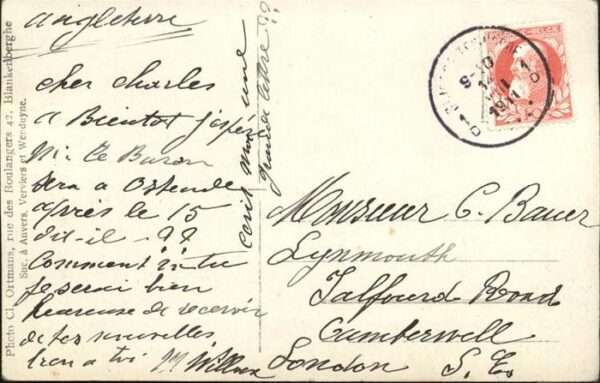 Angleterre
cher charles
a Bientot j'espère
Mr. le Baron
sera a Ostende
après le 15
dit-il - ??
Comment va tu
je serai bien
heureuse de recevoir
de tes nouvelles
bien a toi M Willcox
ecris moi une
grande lettre ??
Monsieur C. Bauer
Lynmouth
Talfourd Road
Camberwell
London S. E.
Photo Cl. Ortmans, rue des Boulangers 47, Blankenberghe
Suc. à Anvers, Verviers et Wenduyne.
1911